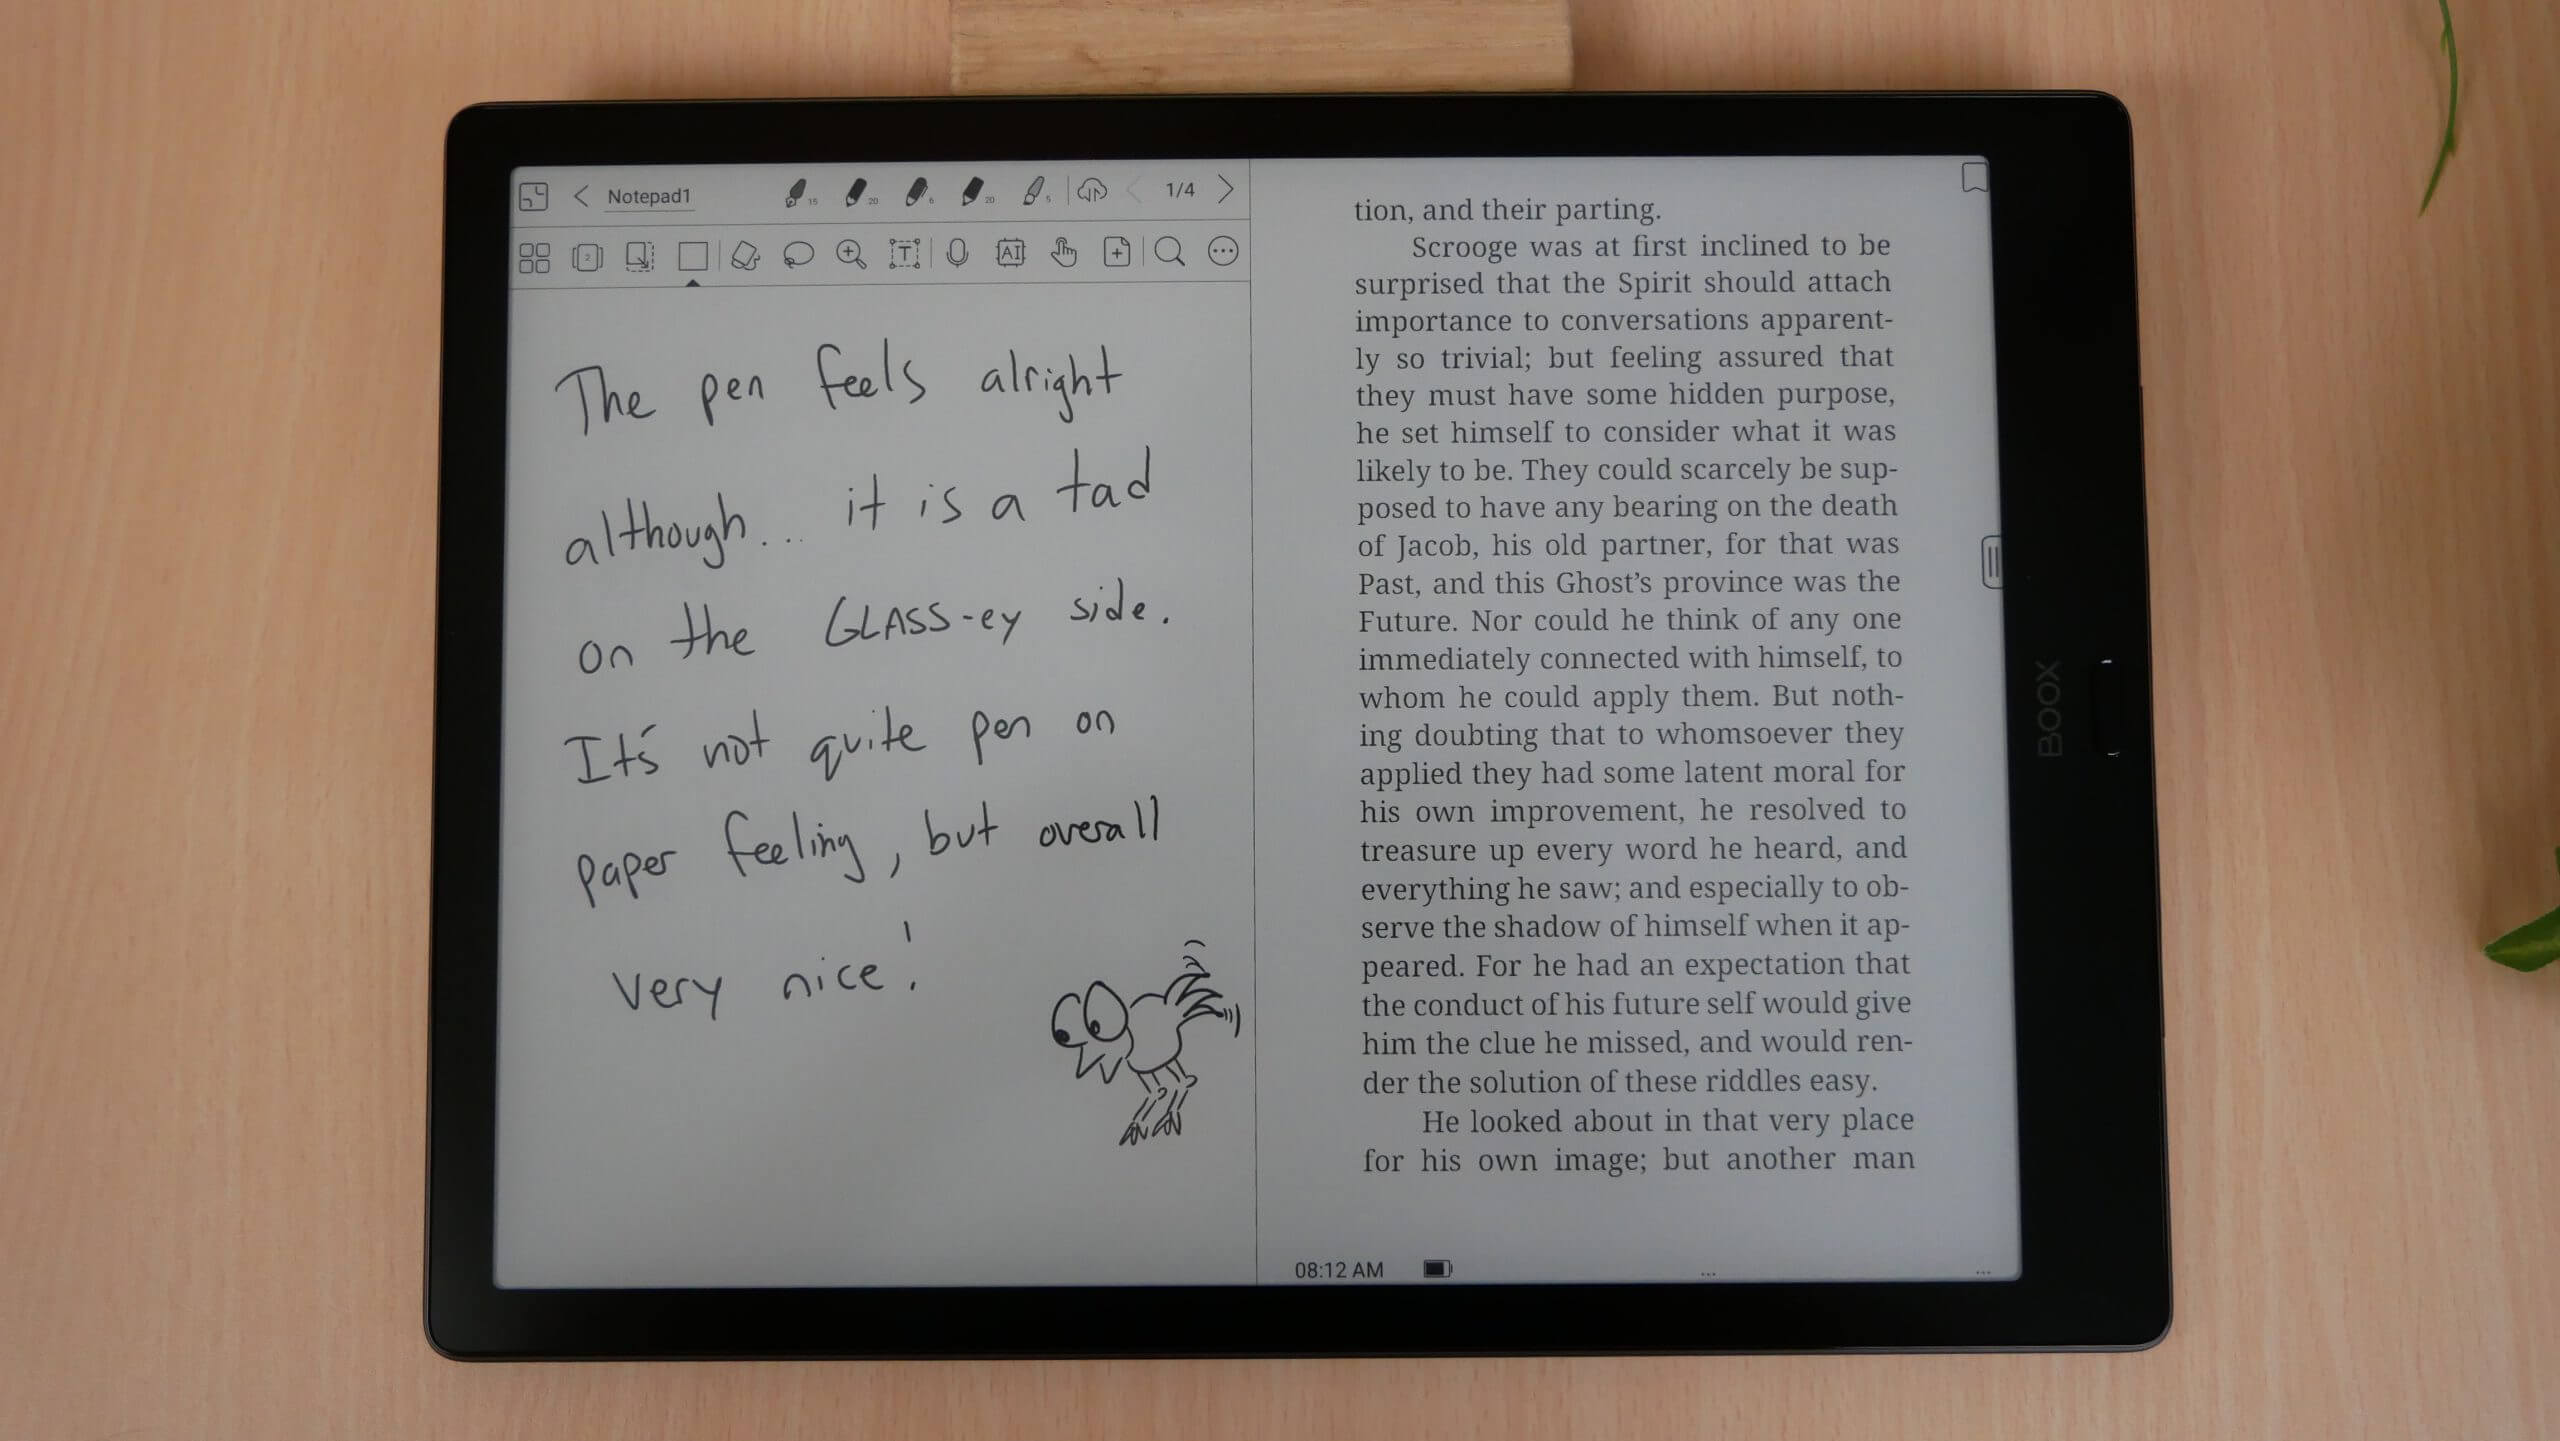 Notepad1
15
20
6
20
5
1/4
2
T
AI
The pen feels alright
although... it is a tad
on the GLASS-ey side.
It's not quite pen on
paper feeling, but overall
very nice!
tion, and their parting.
Scrooge was at first inclined to be
surprised that the Spirit should attach
importance to conversations apparent-
ly so trivial; but feeling assured that
they must have some hidden purpose,
he set himself to consider what it was
likely to be. They could scarcely be sup-
posed to have any bearing on the death
of Jacob, his old partner, for that was
Past, and this Ghost’s province was the
Future. Nor could he think of any one
immediately connected with himself, to
whom he could apply them. But noth-
ing doubting that to whomsoever they
applied they had some latent moral for
his own improvement, he resolved to
treasure up every word he heard, and
everything he saw; and especially to ob-
serve the shadow of himself when it ap-
peared. For he had an expectation that
the conduct of his future self would give
him the clue he missed, and would ren-
der the solution of these riddles easy.
He looked about in that very place
for his own image; but another man
08:12 AM
... ...
BOOX